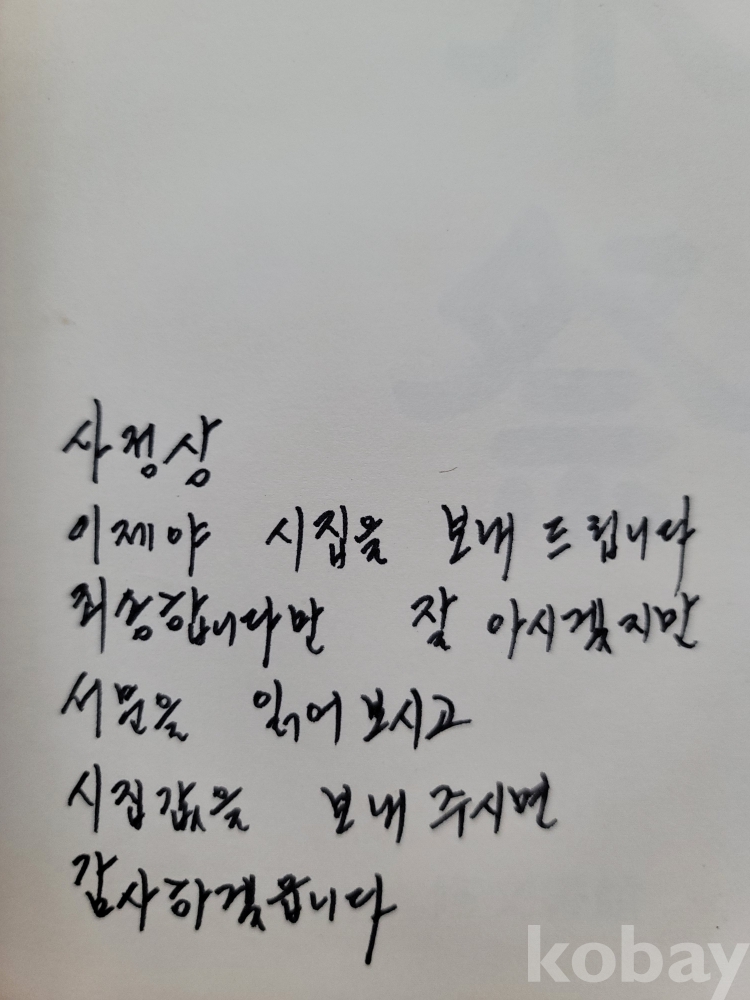 사정상
이제야 시집을 보내 드립니다
죄송합니다만 잘 아시겠지만
서문을 읽어 보시고
시집값을 보내 주시면
감사하겠읍니다
kobay